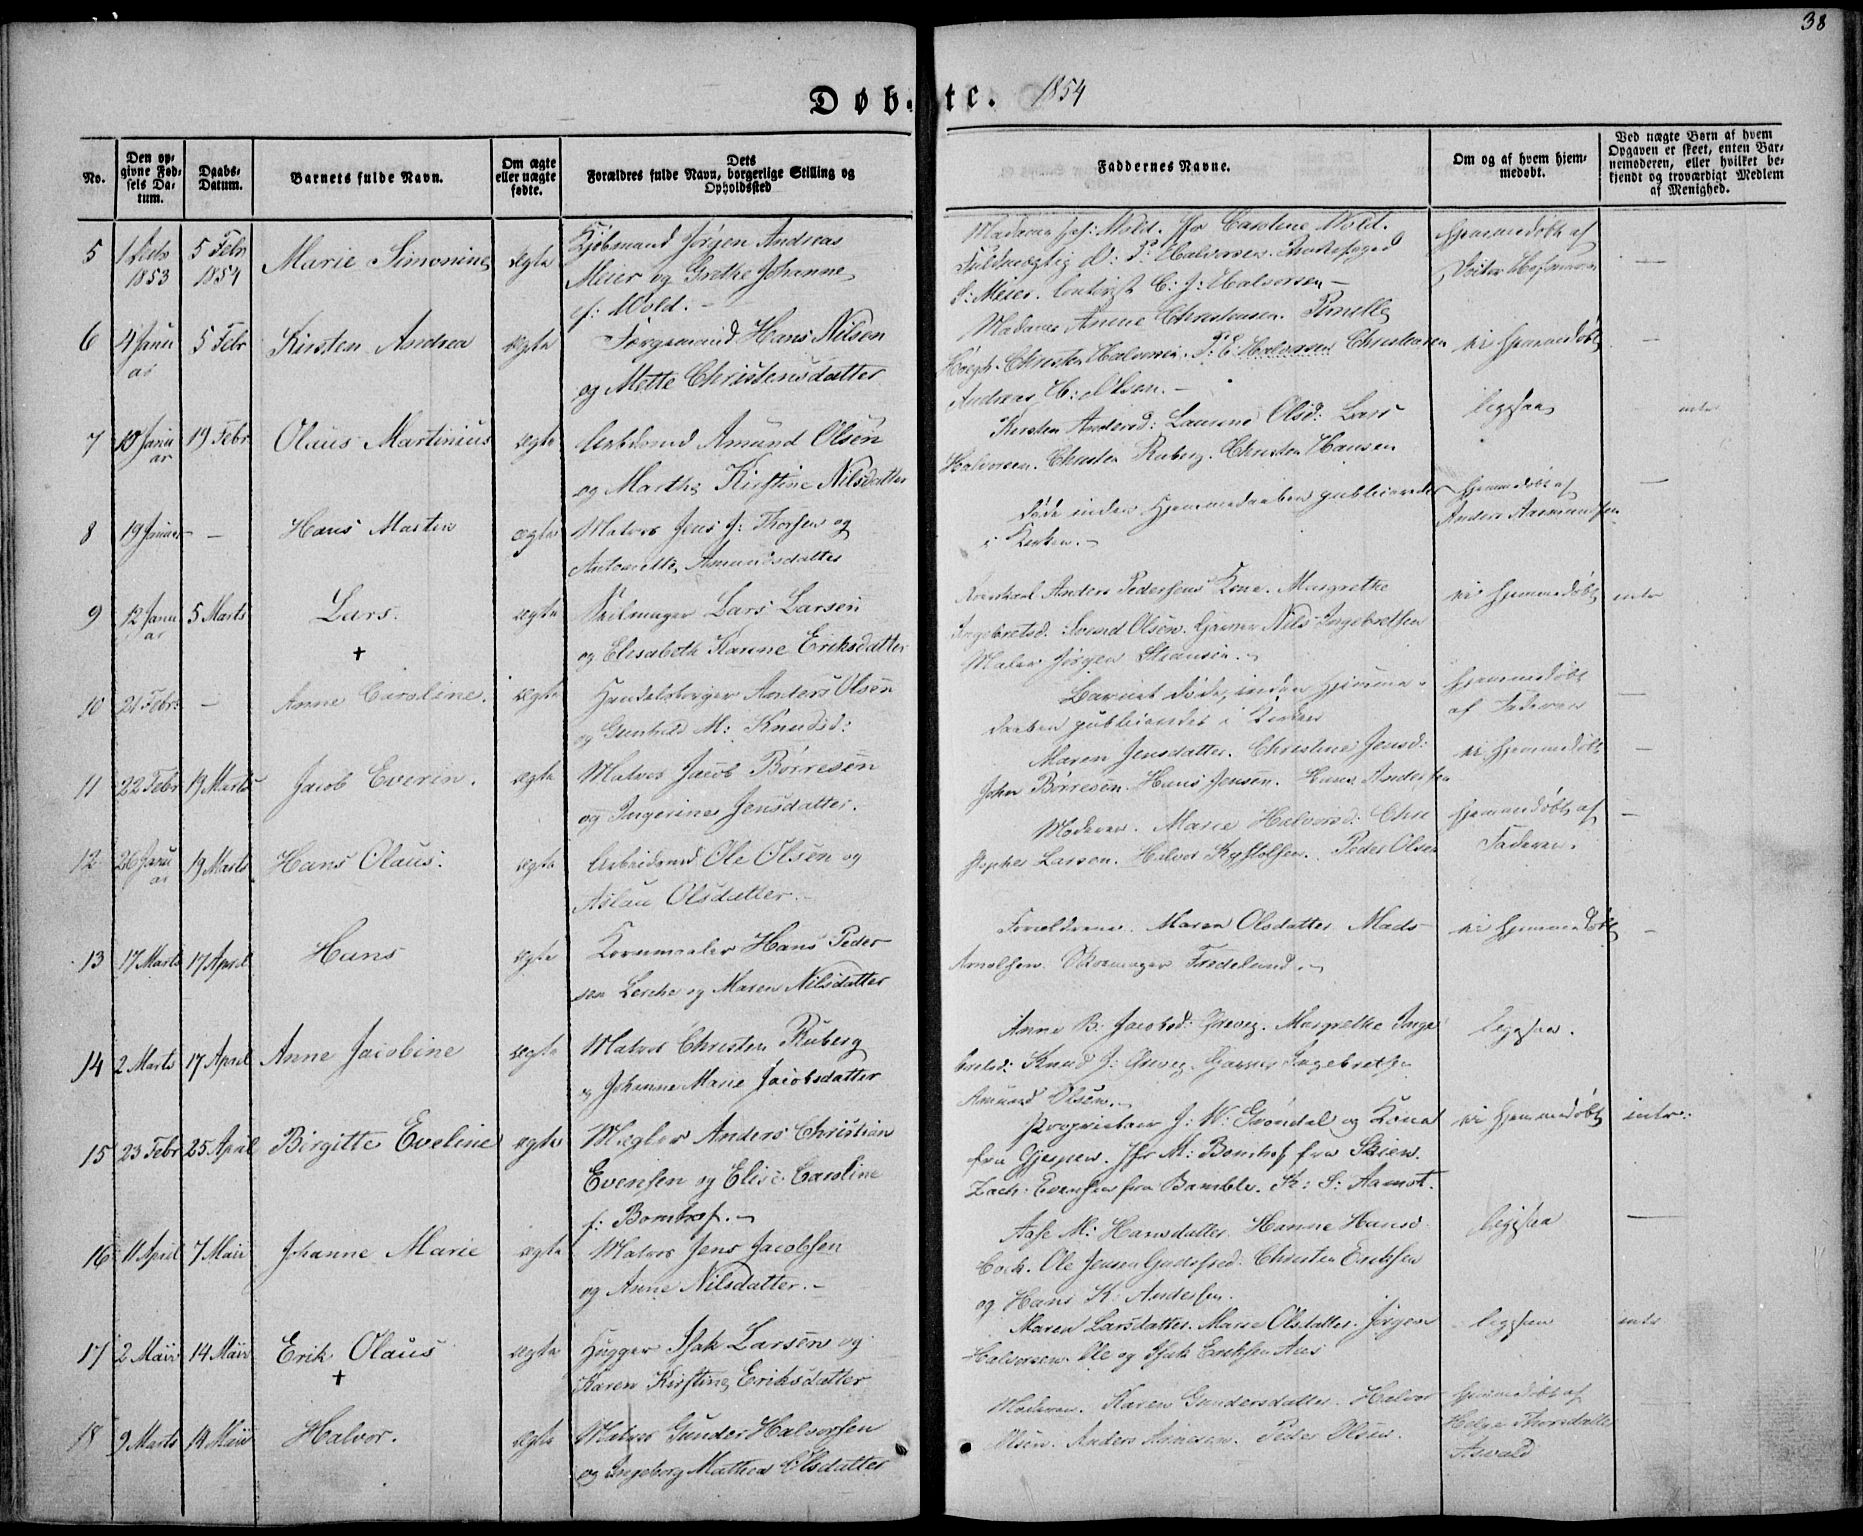 38
Døbte. 1854
No.
Den opgivne Fødsels Datum.
Daabs-Datum.
Barnets fulde Navn.
Om ægte eller uægte fødte.
Dets Forældres fulde Navn, borgerlige Stilling og Opholdssted
Faddernes Navne.
Om og af hvem hjemmedøbt.
Ved uægte Børn af hvem Opgaven er skeet, enten Barnemoderen, eller hvilket bekjendt og troværdigt Medlem af Menighed.
5 1853 5 Febr 1854 Marie Simonine ægte Kjøbmand Jørgen Andreas
Meier og Grethe Johanne
f: Wold. –
Caroline Wold.
P: Halvorsen.
S: Meier. C: J: Halvorsen –
hjemmedøbt af
6 4 Januar 5 Febr Kirsten Andrea ægte Færgemand Hans Nilsen
og Mette Christensdatter
Madame Anne Christensen. Pernille
Christen Halvorsen. P: C: Halvorsen Christensen
Andreas H: Olsen. –
ei hjemmedøbt –
7 10 Januar 19 Febr Olaus Martinius ægte Arbdsmd Amund Olsen
og Marthe Kirstine Nilsdatter
Kirsten Andersd: Laurine Olsd: Lars
Halvorsen. Christen Ruberg. Christen Hansen
ligesaa intr
8 19 Januar – Hans Martin ægte Matros Jens J: Thorsen og
Antonette Amundsdatter
Døde inden Hjemmedaaben publiceredes
i Kirken. –
hjemmedøbt af
Anders Aamundsen
9 12 Januar 5 Marts Lars. + ægte Seilmager Lars Larsen
og Elisabeth Karine Eriksdatter
Anders Pedersens Kone. Margrethe
Ingebretsd. Svend Olsen. Garver Nils Ingebretsen
Maler Jørgen
ei hjemmedøbt intr
10 21 Febr – Anne Caroline. ægte Handelsborger Anders Olsen
og Gunhild M: Knudsd:
Barnet døde, inden Hjemme-
daaben publiceredes i Kirken
hjemmedøbt
af Faderen –
11 22 Febr 19 Marts Jacob Everin. ægte Matros Jacob Børresen
og Ingerine Jensdatter.
Maren Jensdatter. Christine Jensd:
John Børresen. Hans Jensen. Hans Andersen
ei hjemmedøbt –
12 26 Januar 19 Marts Hans Olaus. ægte Arbeidsmd Ole Olsen og
Aslau Olsdatter. –
Moderen. Marie Halvorsd: Chri
stopher Larsen. Halvor Peder Olsen
hjemmedøbt af
Faderen. –
13 17 Marts 17 April Hans ægte Kornmaaler Hans Peder
sen Lerche og Maren Nilsdatter
Forældrene. Maren Olsdatter Mads
Arnolsen. Skomager
ei hjemmedøbt –
14 2 Marts 17 April Anne Jacobine ægte Matros Christen Ruberg
og Johanne Marie Jacobsdatter
Anne B: Jacobsd: Grevig. Margrethe Inge
bretsd: Knud J: Grevig. Garver Ingebretsen
Amund Olsen. –
ligesaa.
15 23 Febr 25 April Birgitte Eveline ægte Mægler Anders Christian
Evensen og Elise Caroline
f: Bomhof. –
Proprietair J: W: Grøndal og Kone
fra Gjerpen. Jfr M: Bomhof fra Skien.
Zach: Evensen fra Bamble. K: S: Aamot.
ei hjemmedøbt intr:
16 11 April 7 Maii Johanne Marie ægte Matros Jens Jacobsen
og Anne Nilsdatter. –
Aase M: Hansdatter. Hanne Hansd
Ole Jensen Christen Eriksen
og Hans K: Andersen.
ligesaa –
17 2 Maii 14 Maii Erik Olaus + ægte Hugger Isak Larsen og
Karen Kirstine Eriksdatter
Maren Larsdatter. Marie Olsdatter. Jørgen
Halvorsen. Ole og Isak Eriksen Aas
ligesaa intr
18 9 Marts 14 Maii Halvor. ægte Matros Gunder Halvorsen
og Ingeborg Mathea Olsdatter
Moderen. Karen Gundersdatter. Halvor
Olsen. Anders Arnesen. Peder Olsen.
hjemmedøbt af
Helge Thorsdatter
Aswald